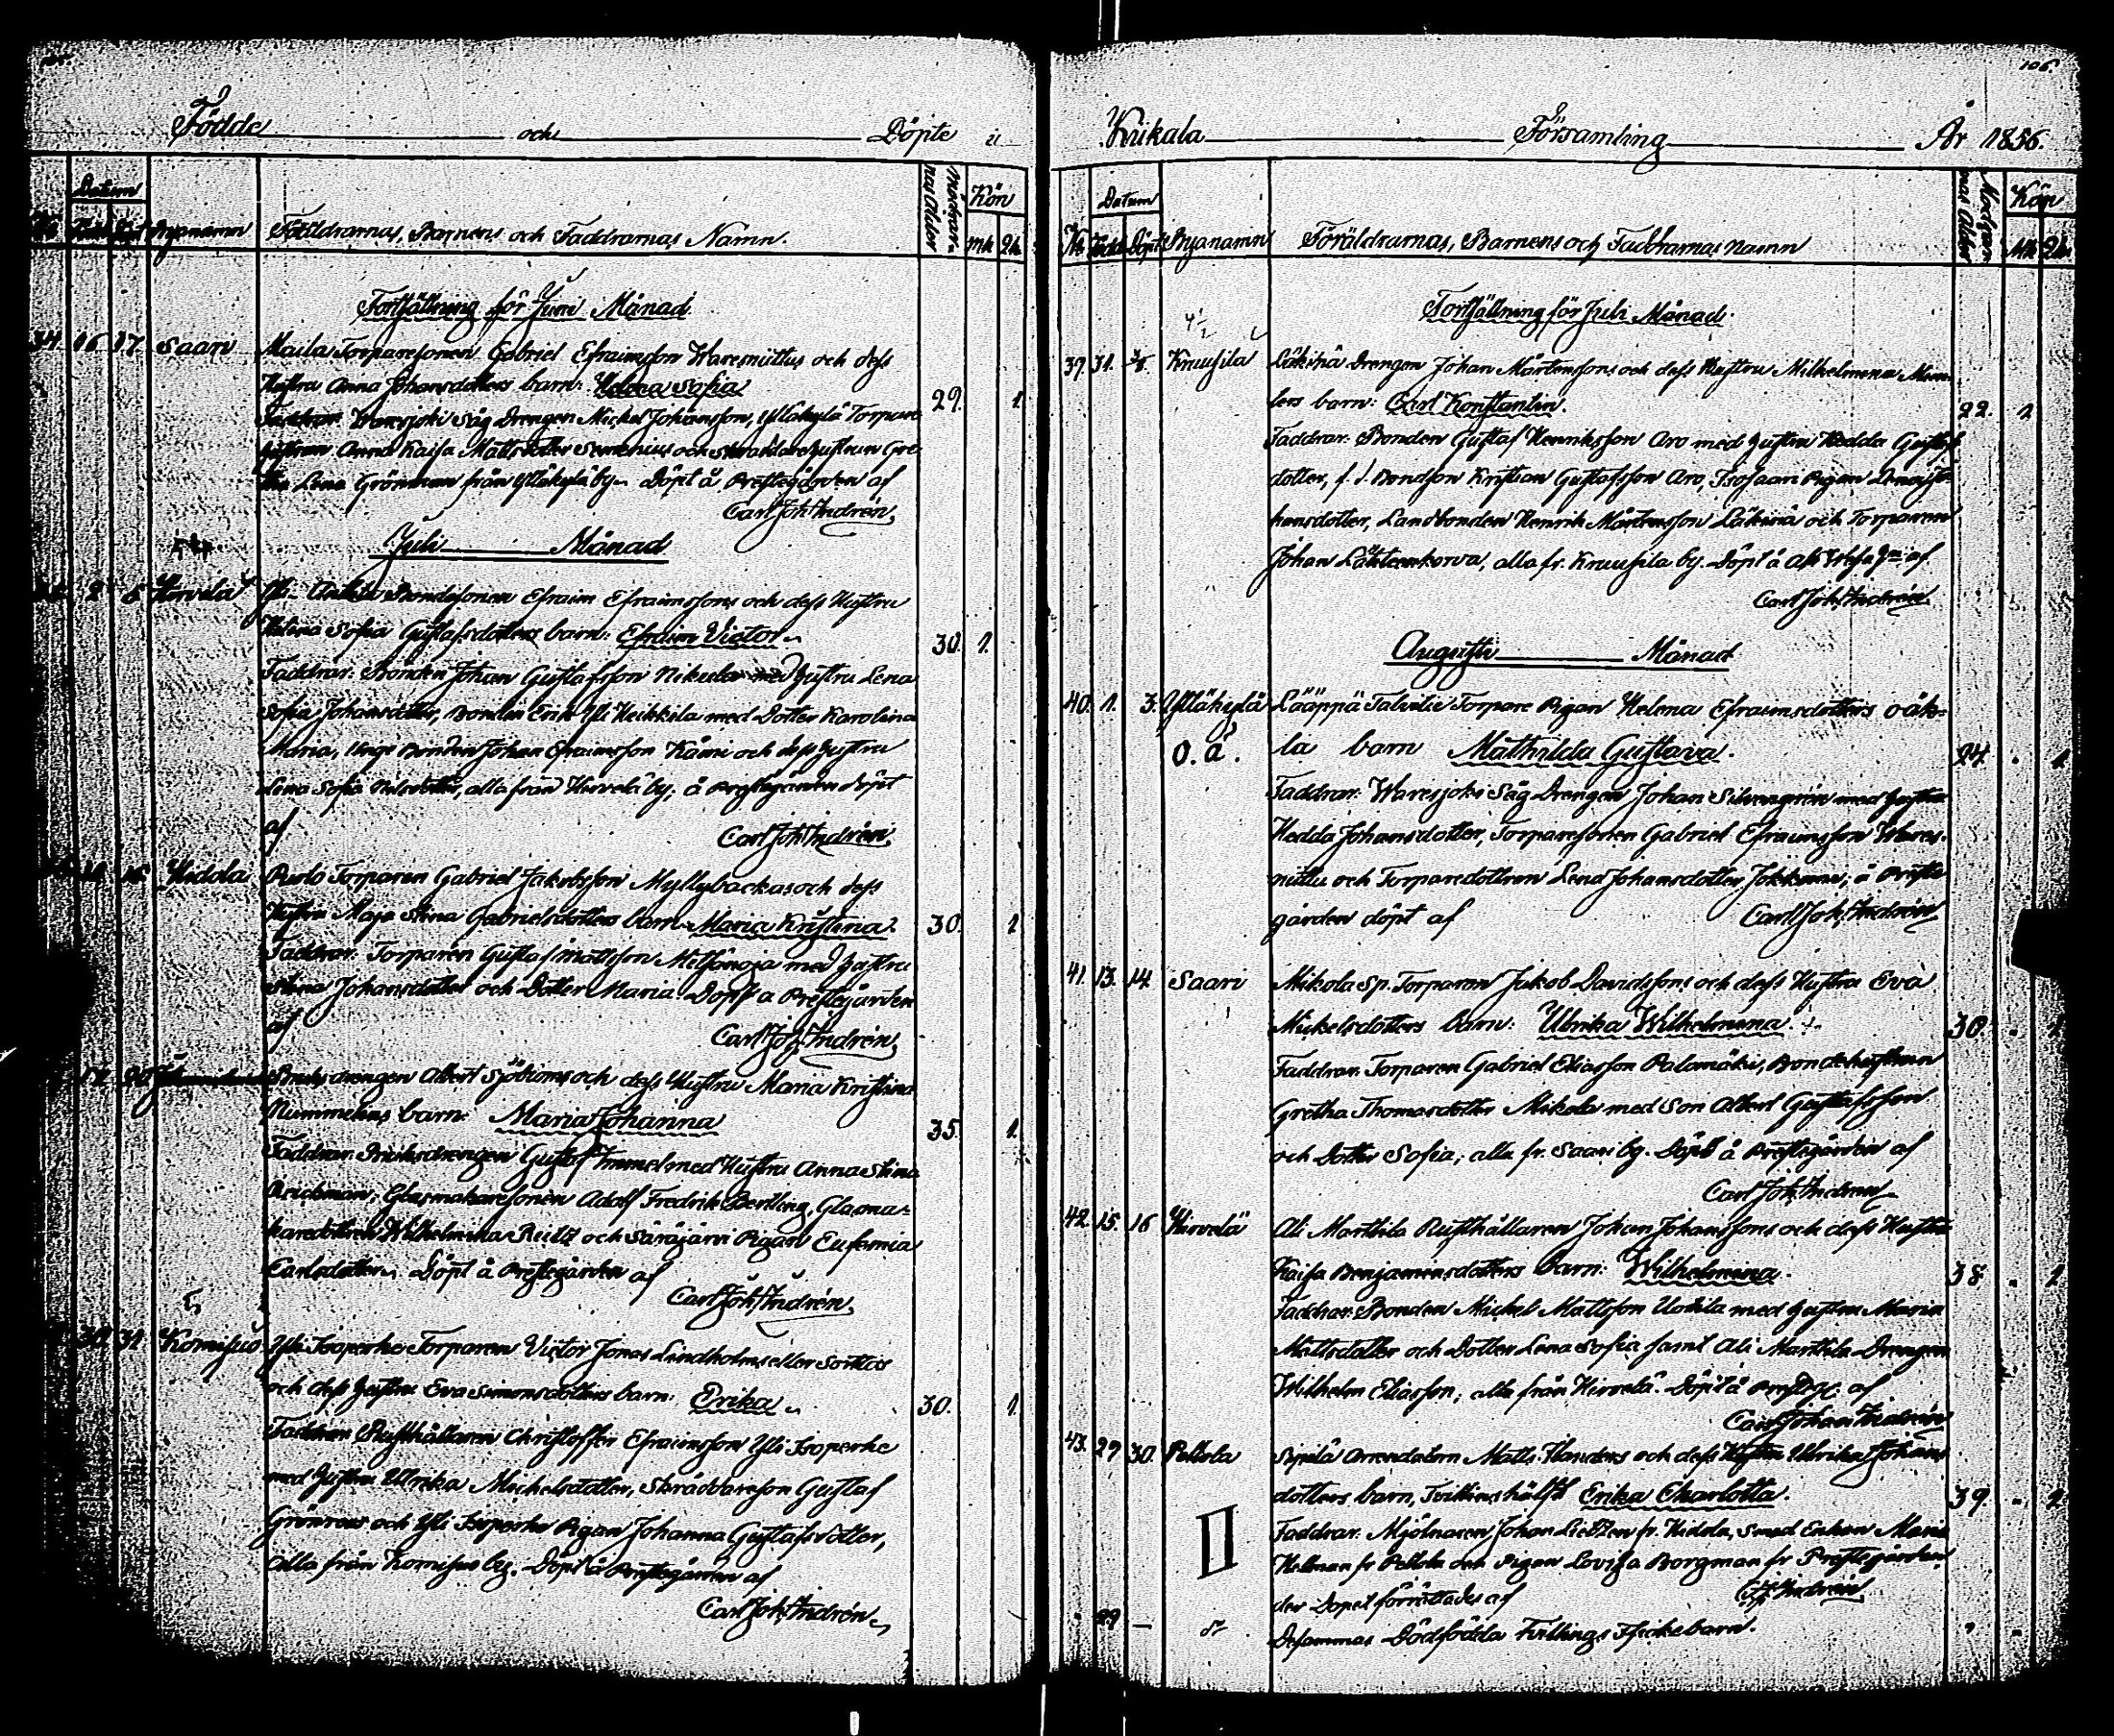 Födde och Döpte i
Datum
Byanamn Föräldrarnas, Barnens och Faddrarnas Namn.
Mödrarnas Ålder
Kön
mk Qk
Fortsättning för Juni Månad
34 16 17 Saari Maila Torparesonen Gabriel Efraimsson Waresnittus och dess
Hustru Anna Johansdotters barn: Helena Sofia 29. 1.
Faddrar: Waresjoki Såg Drengen Michel Johansson, Yltäkylä Torpare
hustrun Anna Kaisa Mattsdotter och Skräddarehustrun Gre-
tha Lena Grönman från Yltäkylä by. Döpt å Prestegården af
Carl Joh. Andrén
Juli Månad
2 5 Hirvelä Yli Bondesonen Efraim Efraimssons och dess Hustru
Helena Sofia Gustafsdotters barn: Efraim Victor 30. 1.
Faddrar: Bonden Johan Gustafsson Nikula med Hustru Lena
Sofia Johansdotter, Bonden Erik Yli Heikkila med Dotter Karolina
Maria, Unge Bonden Johan Efraimsson och dess Hustru
Lena Sofia Nilsdotter, alla från Hirvelä by; å Prestegården döpt
af Carl Joh. Andrén
Hidola Torparen Gabriel Jakobsson Myllybackas och dess
Hustru Maja Stina Gabrielsdotters barn Maria Kristina. 30. 1
Faddrar: Torparen Gustaf Mattsson Metsänoja med Hustru
Stina Johansdotter och Dotter Maria. Döpt å Prestegården
af Carl Joh. Andrén
17 20 Bruksdrengen Albert Sjöbloms och dess Hustru Maria Kristina
Nummelins barn: Maria Johanna 35. 1.
Faddrar: Bruksdrengen Gustaf Immel med Hustru Anna Stina
Reichman, Glasmakaresonen Adolf Fredrik Bertling, Glasma-
karedottren Wilhelmina Reitz och Säräjärvi Pigan Eufemia
Carlsdotter. Döpt å Prestegården af
Carl Joh. Andrén
30 31 Komisuo Yli Isoperhe Torparen Victor Jonas Lindholms eller
och dess Hustru Eva Simonsdotters barn: Erika 30. 1.
Faddrar: Rusthållaren Christoffer Efraimsson Yli Isoperhe
med Hustru Ulrika Michelsdotter, Skräddareson Gustaf
Grönroos och Yli Isoperhe Pigan Johanna Gustafsdotter,
alla från Komisuo by. Döpt å Prestegården af
Carl Joh. Andrén
106.
Kiikala Församling År 1856.
Datum
No Födde Döpte Byanamn Föräldrarnas, Barnens och Faddrarnas namn
Mödrarnas Ålder
Kön
Mk Qk
Fortsättning för Juli Månad.
39. 31. Kruusila Läkiniä Drengen Johan Mårtenssons och dess Hustru Wilhelmina
lers barn: Carl Konstantin. 22. 1
Faddrar: Bonden Gustaf Henriksson Aro med Hustru Hedda Gustafs-
dotter, f.d. Bondson Kristian Gustafsson Aro, Isosaari Pigan Lena Jo-
hansdotter, Landbonden Henrik Mårtensson Läkiniä och Torparen
Johan Lähteenkorva, alla fr. Kruusila by. Döpt å af
Carl Joh. Andrén
Augusti Månad
40. 1. 3. Yltäkylä Lääppä Torpare Pigan Helena Efraimsdotters oäk-
O. ä. ta barn Mathilda Gustava. 24. 1
Faddrar: Waresjoki Såg Drengen Johan Silvengrén med Hustru
Hedda Johansdotter, Torparesonen Gabriel Efraimsson Wares-
nittu och Torparedottren Lena Johansdotter Jokkanu; å Preste
gården döpt af Carl Joh. Andrén
41. 13. 14. Saari Mikola Sp. Torparen Jakob Davidssons och dess Hustru Eva
Mickelsdotters barn: Ulrika Wilhelmina. 30. 1
Faddrar: Torparen Gabriel Eliasson Palomäki, Bondehustrun
Gretha Thomasdotter Mikola med Son Albert Gustafsson
och Dotter Sofia; alla fr. Saari by. Döpt å Prestegården af
Carl Joh. Andrén
42. 15. 16 Hirvelä Ali Marttila Rusthållaren Johan Johanssons och dess Hustru
Kaisa Benjaminsdotters barn: Wilhelmina. 38. 1
Faddrar: Bonden Mickel Mattsson med Hustru Maria
Mattsdotter och Dotter Lena Sofia samt Ali Marttila Drengen
Wilhelm Eliasson; alla från Hirvelä. Döpt å Presteg. af
Carl Johan Andrén
43. 29 30. Peltola Sipilä Arrendatorn Matts Flanders och dess Hustru Ulrika Johans
dotters barn, Tvillinghälft Erika Charlotta. 39. 1
Faddrar: Mjölnaren Johan Lietzen fr. Hidola, Smed Enkan Maria
Hellman fr Peltola och Pigan Lovisa Borgman fr Prestegården,
der Dopet förrättades af C. J. Andrén
29 — Desammas Dödfödda Tvillings Flickebarn.